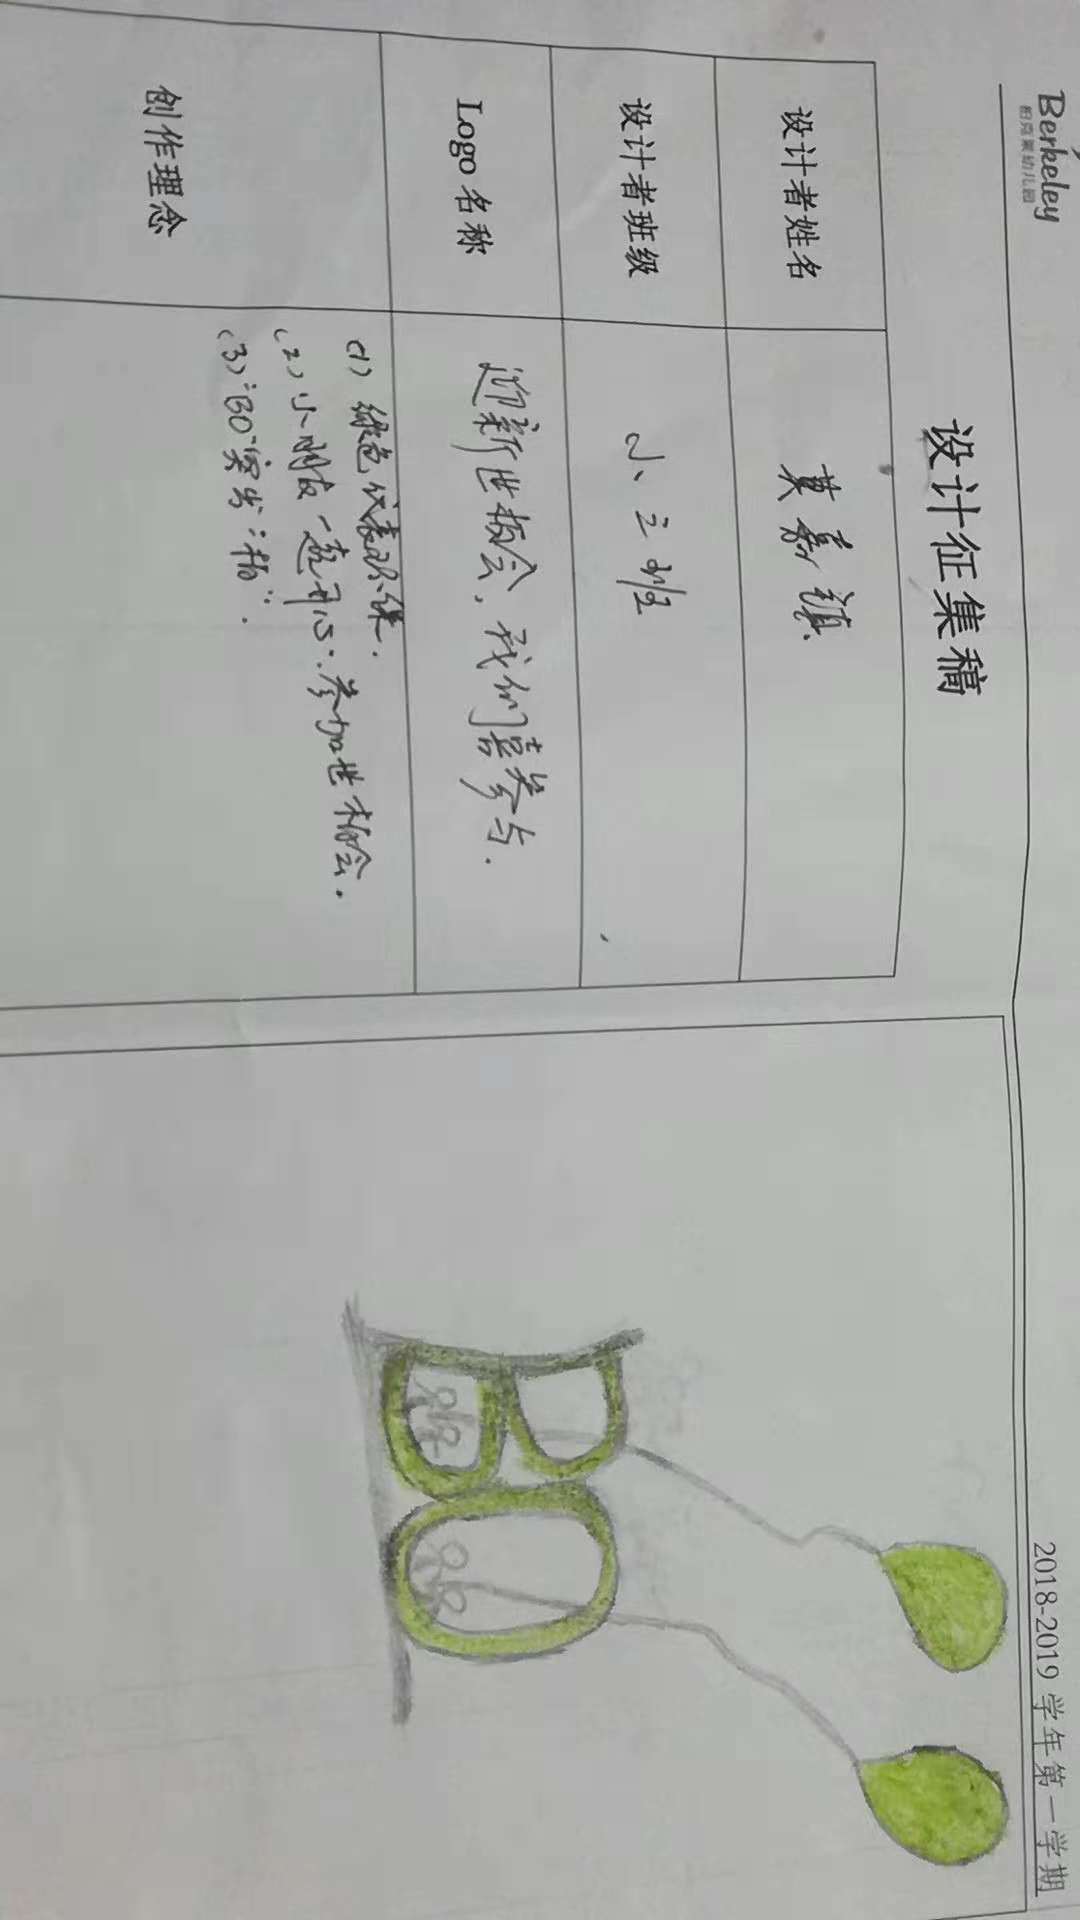 Berkeley
柏克莱幼儿园
2018-2019 学年第一学期
设计征集稿
设计者姓名
黄嘉镇
设计者班级
小三班
Logo 名称
迎新世柏会，我们喜参与.
创作理念
(1) 绿色代表环保.
(2) 小朋友一起开心心参加世柏会.
(3) "BO"突出"柏".
BO